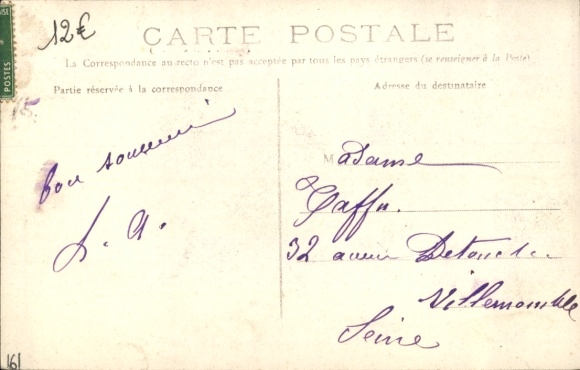 12€
CARTE POSTALE
La Correspondance au recto n'est pas acceptée par tous les pays étrangers (se renseigner à la Poste)
Partie réservée à la correspondance
Adresse du destinataire
POSTES
15
bon souvenir
Madame
32 avenue
Villemomble
Seine
161